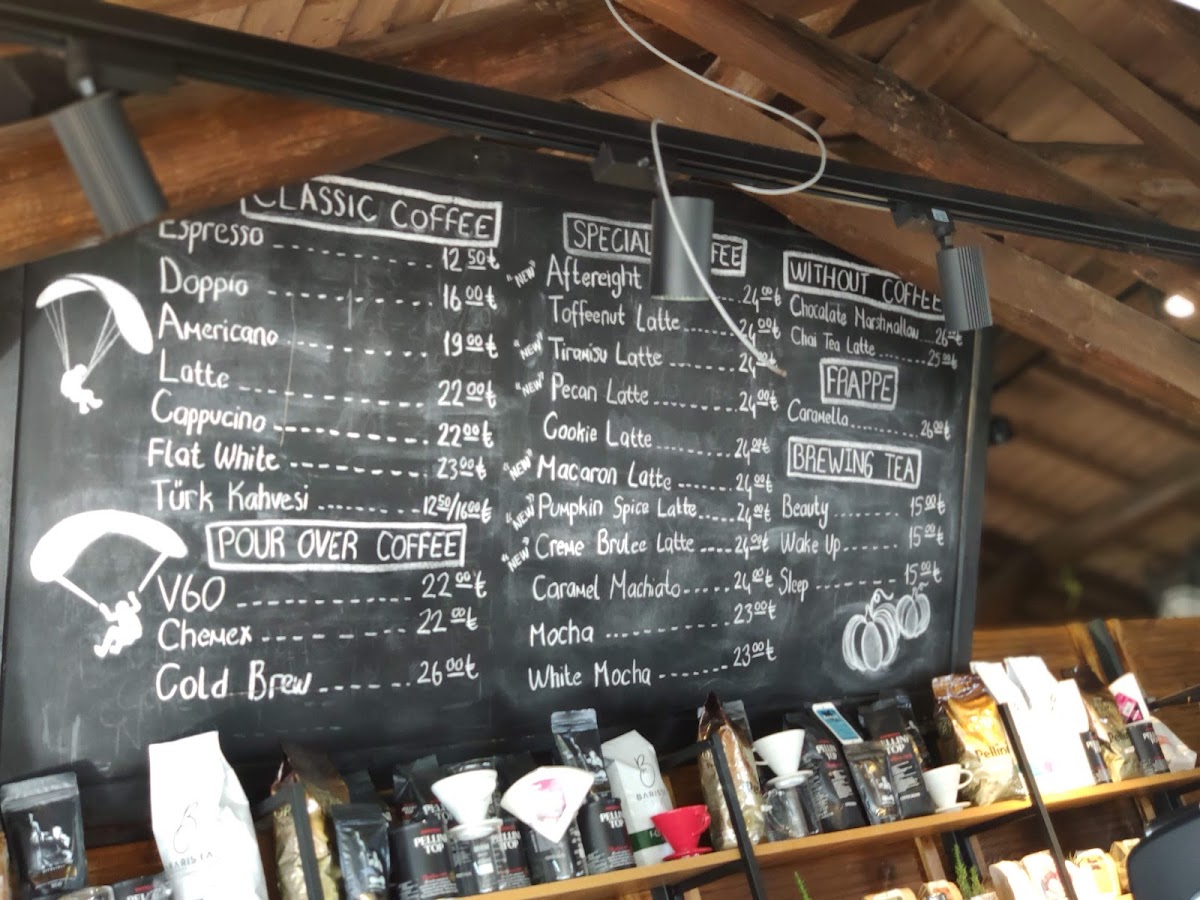 CLASSIC COFFEE
Espresso 12 50 ₺
Doppio 16 00 ₺
Americano 19 00 ₺
Latte 22 00 ₺
Cappucino 22 00 ₺
Flat White 23 00 ₺
Türk Kahvesi 12 50/16 00 ₺
POUR OVER COFFEE
V60 22 00 ₺
Chemex 22 00 ₺
Cold Brew 26 00 ₺
SPECIAL FEE
"NEW" Aftereight 24 00 ₺
Toffeenut Latte 24 00 ₺
"NEW" Tiramisu Latte 24 00 ₺
"NEW" Pecan Latte 24 00 ₺
Cookie Latte 24 00 ₺
"NEW" Macaron Latte 24 00 ₺
"NEW" Pumpkin Spice Latte 24 00 ₺
"NEW" Creme Brulee Latte 24 00 ₺
Caramel Machiato 24 00 ₺
Mocha 23 00 ₺
White Mocha 23 00 ₺
WITHOUT COFFEE
Chocalate Marshmallow 26 00 ₺
Chai Tea Latte 25 00 ₺
FRAPPE
Caramella 26 00 ₺
BREWING TEA
Beauty 15 00 ₺
Wake Up 15 00 ₺
Sleep 15 00 ₺
BARISTA
PELLINI
TOP
PELLINI
TOP
BARIS
PELLINI
TOP
Pellini